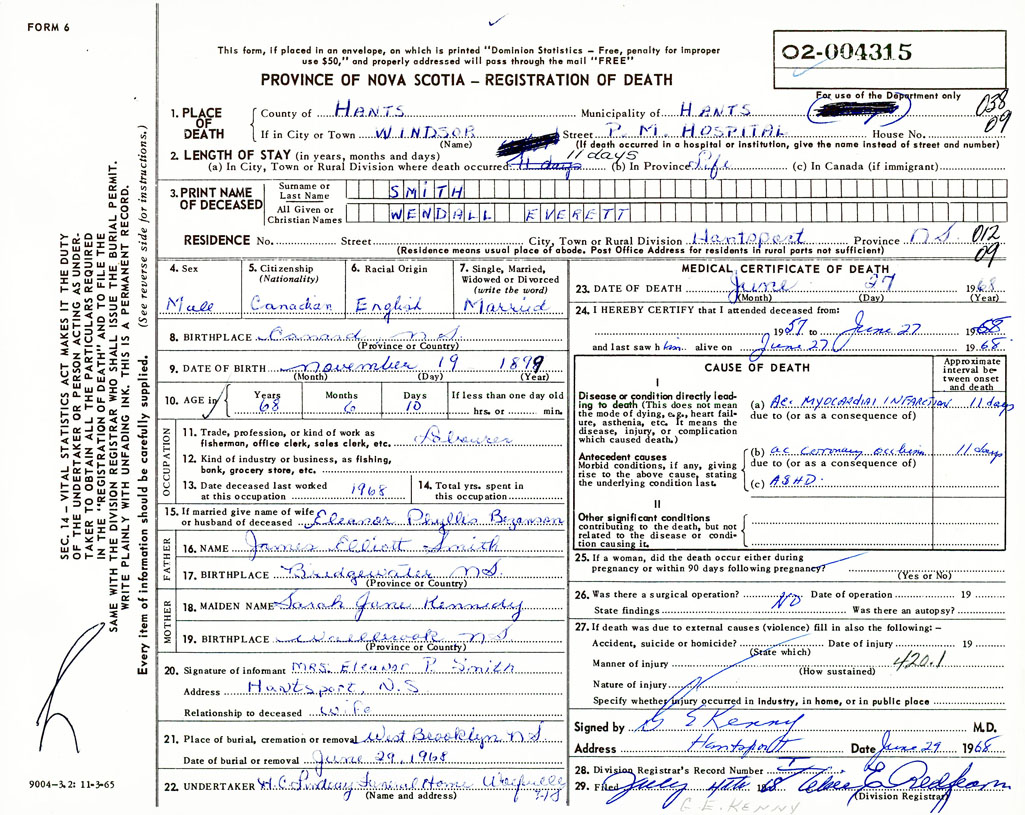 FORM 6
This form, if placed in an envelope, on which is printed "Dominion Statistics – Free, penalty for improper
use $50," and properly addressed will pass through the mail "FREE"
02-004315
PROVINCE OF NOVA SCOTIA – REGISTRATION OF DEATH
For use of the Department only
038
09
1. PLACE OF DEATH
County of HANTS Municipality of HANTS
If in City or Town WINDSOR Street P. M. HOSPITAL House No.
(Name) (If death occurred in a hospital or institution, give the name instead of street and number)
2. LENGTH OF STAY (in years, months and days) 11 days
(a) In City, Town or Rural Division where death occurred 11 days (b) In Province Life (c) In Canada (if immigrant)
3. PRINT NAME OF DECEASED
Surname or Last Name SMITH
All Given or Christian Names WENDALL EVERETT
RESIDENCE No. Street City, Town or Rural Division Hantsport Province N S 012
09
(Residence means usual place of abode. Post Office Address for residents in rural parts not sufficient)
4. Sex 5. Citizenship (Nationality) 6. Racial Origin 7. Single, Married, Widowed or Divorced (write the word)
Male Canadian English Married
8. BIRTHPLACE Canada N S
(Province or Country)
9. DATE OF BIRTH November 19 1899
(Month) (Day) (Year)
10. AGE in Years Months Days If less than one day old
68 6 10 hrs. or min.
OCCUPATION
11. Trade, profession, or kind of work as
fisherman, office clerk, sales clerk, etc.
12. Kind of industry or business, as fishing,
bank, grocery store, etc.
13. Date deceased last worked at this occupation 1968
14. Total yrs. spent in this occupation
15. If married give name of wife or husband of deceased Eleanor Phyllis Bezanson
FATHER
16. NAME James Elliott Smith
17. BIRTHPLACE Bridgewater N.S.
(Province or Country)
MOTHER
18. MAIDEN NAME Sarah Jane Kennedy
19. BIRTHPLACE Wallbrook N S
(Province or Country)
20. Signature of informant MRS. Eleanor P. Smith
Address Hantsport, N.S
Relationship to deceased Wife
21. Place of burial, cremation or removal West Brooklyn N S
Date of burial or removal June 29, 1968
22. UNDERTAKER H.C. Lindsay Funeral Home Wolfville
N.S
(Name and address)
MEDICAL CERTIFICATE OF DEATH
23. DATE OF DEATH June 27 1968
(Month) (Day) (Year)
24. I HEREBY CERTIFY that I attended deceased from:
1957 to June 27 1968
and last saw him alive on June 27 1968
CAUSE OF DEATH
Approximate interval between onset and death
I
Disease or condition directly lead-
ing to death (This does not mean
the mode of dying, e.g., heart fail-
ure, asthenia, etc. It means the
disease, injury, or complication
which caused death.)
(a) Ac. MYOCARDIAL INFARCTION 11 days
due to (or as a consequence of)
Antecedent causes
Morbid conditions, if any, giving
rise to the above cause, stating
the underlying condition last.
(b) ac coronary 11 days
due to (or as a consequence of)
(c) ASHD.
II
Other significant conditions
contributing to the death, but not
related to the disease or condi-
tion causing it.
25. If a woman, did the death occur either during
pregnancy or within 90 days following pregnancy?
(Yes or No)
26. Was there a surgical operation? NO Date of operation 19
State findings Was there an autopsy?
27. If death was due to external causes (violence) fill in also the following:–
Accident, suicide or homicide? Date of injury 19
(State which)
Manner of injury 420.1
(How sustained)
Nature of injury
Specify whether injury occurred in industry, in home, or in public place
Signed by G E Kenny M.D.
Address Hantsport Date June 29 1968
28. Division Registrar's Record Number
29. Filed July 4th 1968
(Division Registrar)
E.E. KENNY
SEC. 14 – VITAL STATISTICS ACT MAKES IT THE DUTY
OF THE UNDERTAKER OR PERSON ACTING AS UNDER-
TAKER TO OBTAIN ALL THE PARTICULARS REQUIRED
IN THE "REGISTRATION OF DEATH" AND TO FILE THE
SAME WITH THE DIVISION REGISTRAR WHO SHALL ISSUE THE BURIAL PERMIT.
WRITE PLAINLY WITH UNFADING INK. THIS IS A PERMANENT RECORD.
Every item of information should be carefully supplied. (See reverse side for instructions.)
9004–3.2: 11-3-65